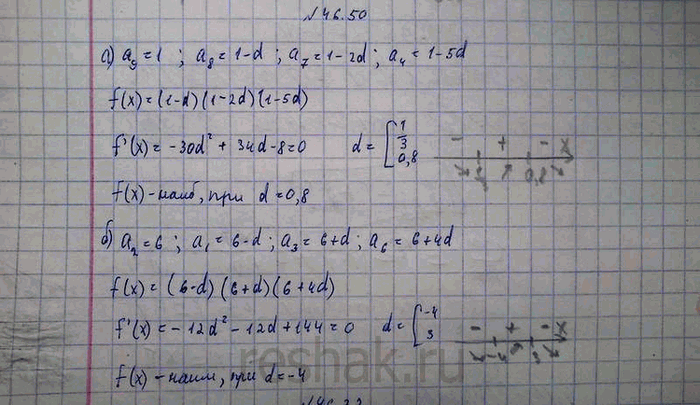 №46.50
а) a₉ = 1 ; a₈ = 1-d ; a₇ = 1-2d ; a₄ = 1-5d
f(x) = (1-d)(1-2d)(1-5d)
f'(x) = -30d² + 34d - 8 = 0 d = [ 1/3 0,8 - + - x
1/3 0,8
f(x) - наиб, при d = 0,8
б) a₂ = 6 ; a₁ = 6-d ; a₃ = 6+d ; a₆ = 6+4d
f(x) = (6-d)(6+d)(6+4d)
f'(x) = -12d² - 12d + 144 = 0 d = [ -4 3 - + - x
-4 3
reshak.ru
f(x) - наим, при d = -4